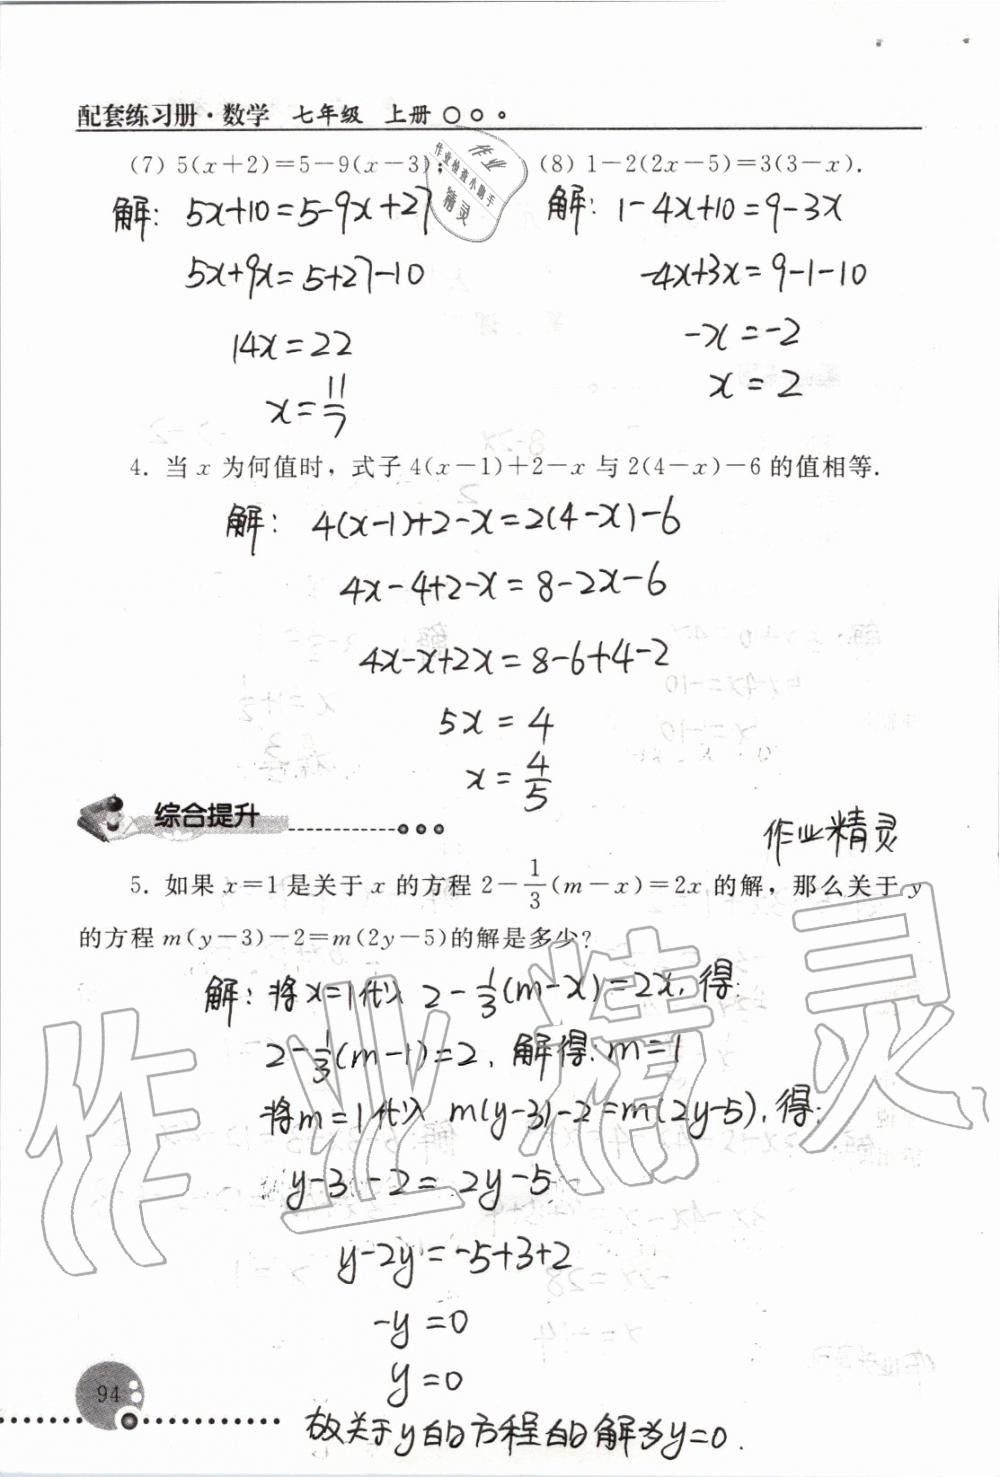 配套练习册·数学 七年级 上册
(7) 5(x+2)=5-9(x-3); (8) 1-2(2x-5)=3(3-x).
解: 5x+10=5-9x+27 解: 1-4x+10=9-3x
5x+9x=5+27-10 -4x+3x=9-1-10
14x=22 -x=-2
x=11/7 x=2
作业
作业检查小助手
精灵
4. 当 x 为何值时，式子 4(x-1)+2-x 与 2(4-x)-6 的值相等.
解: 4(x-1)+2-x=2(4-x)-6
4x-4+2-x=8-2x-6
4x-x+2x=8-6+4-2
5x=4
x=4/5
综合提升
作业精灵
5. 如果 x=1 是关于 x 的方程 2-1/3(m-x)=2x 的解，那么关于 y
的方程 m(y-3)-2=m(2y-5) 的解是多少?
解: 将x=1代入 2-1/3(m-x)=2x, 得:
2-1/3(m-1)=2, 解得: m=1
将m=1代入 m(y-3)-2=m(2y-5), 得:
y-3-2=2y-5
y-2y=-5+3+2
-y=0
y=0
故关于y的方程的解为y=0.
94
作业精灵